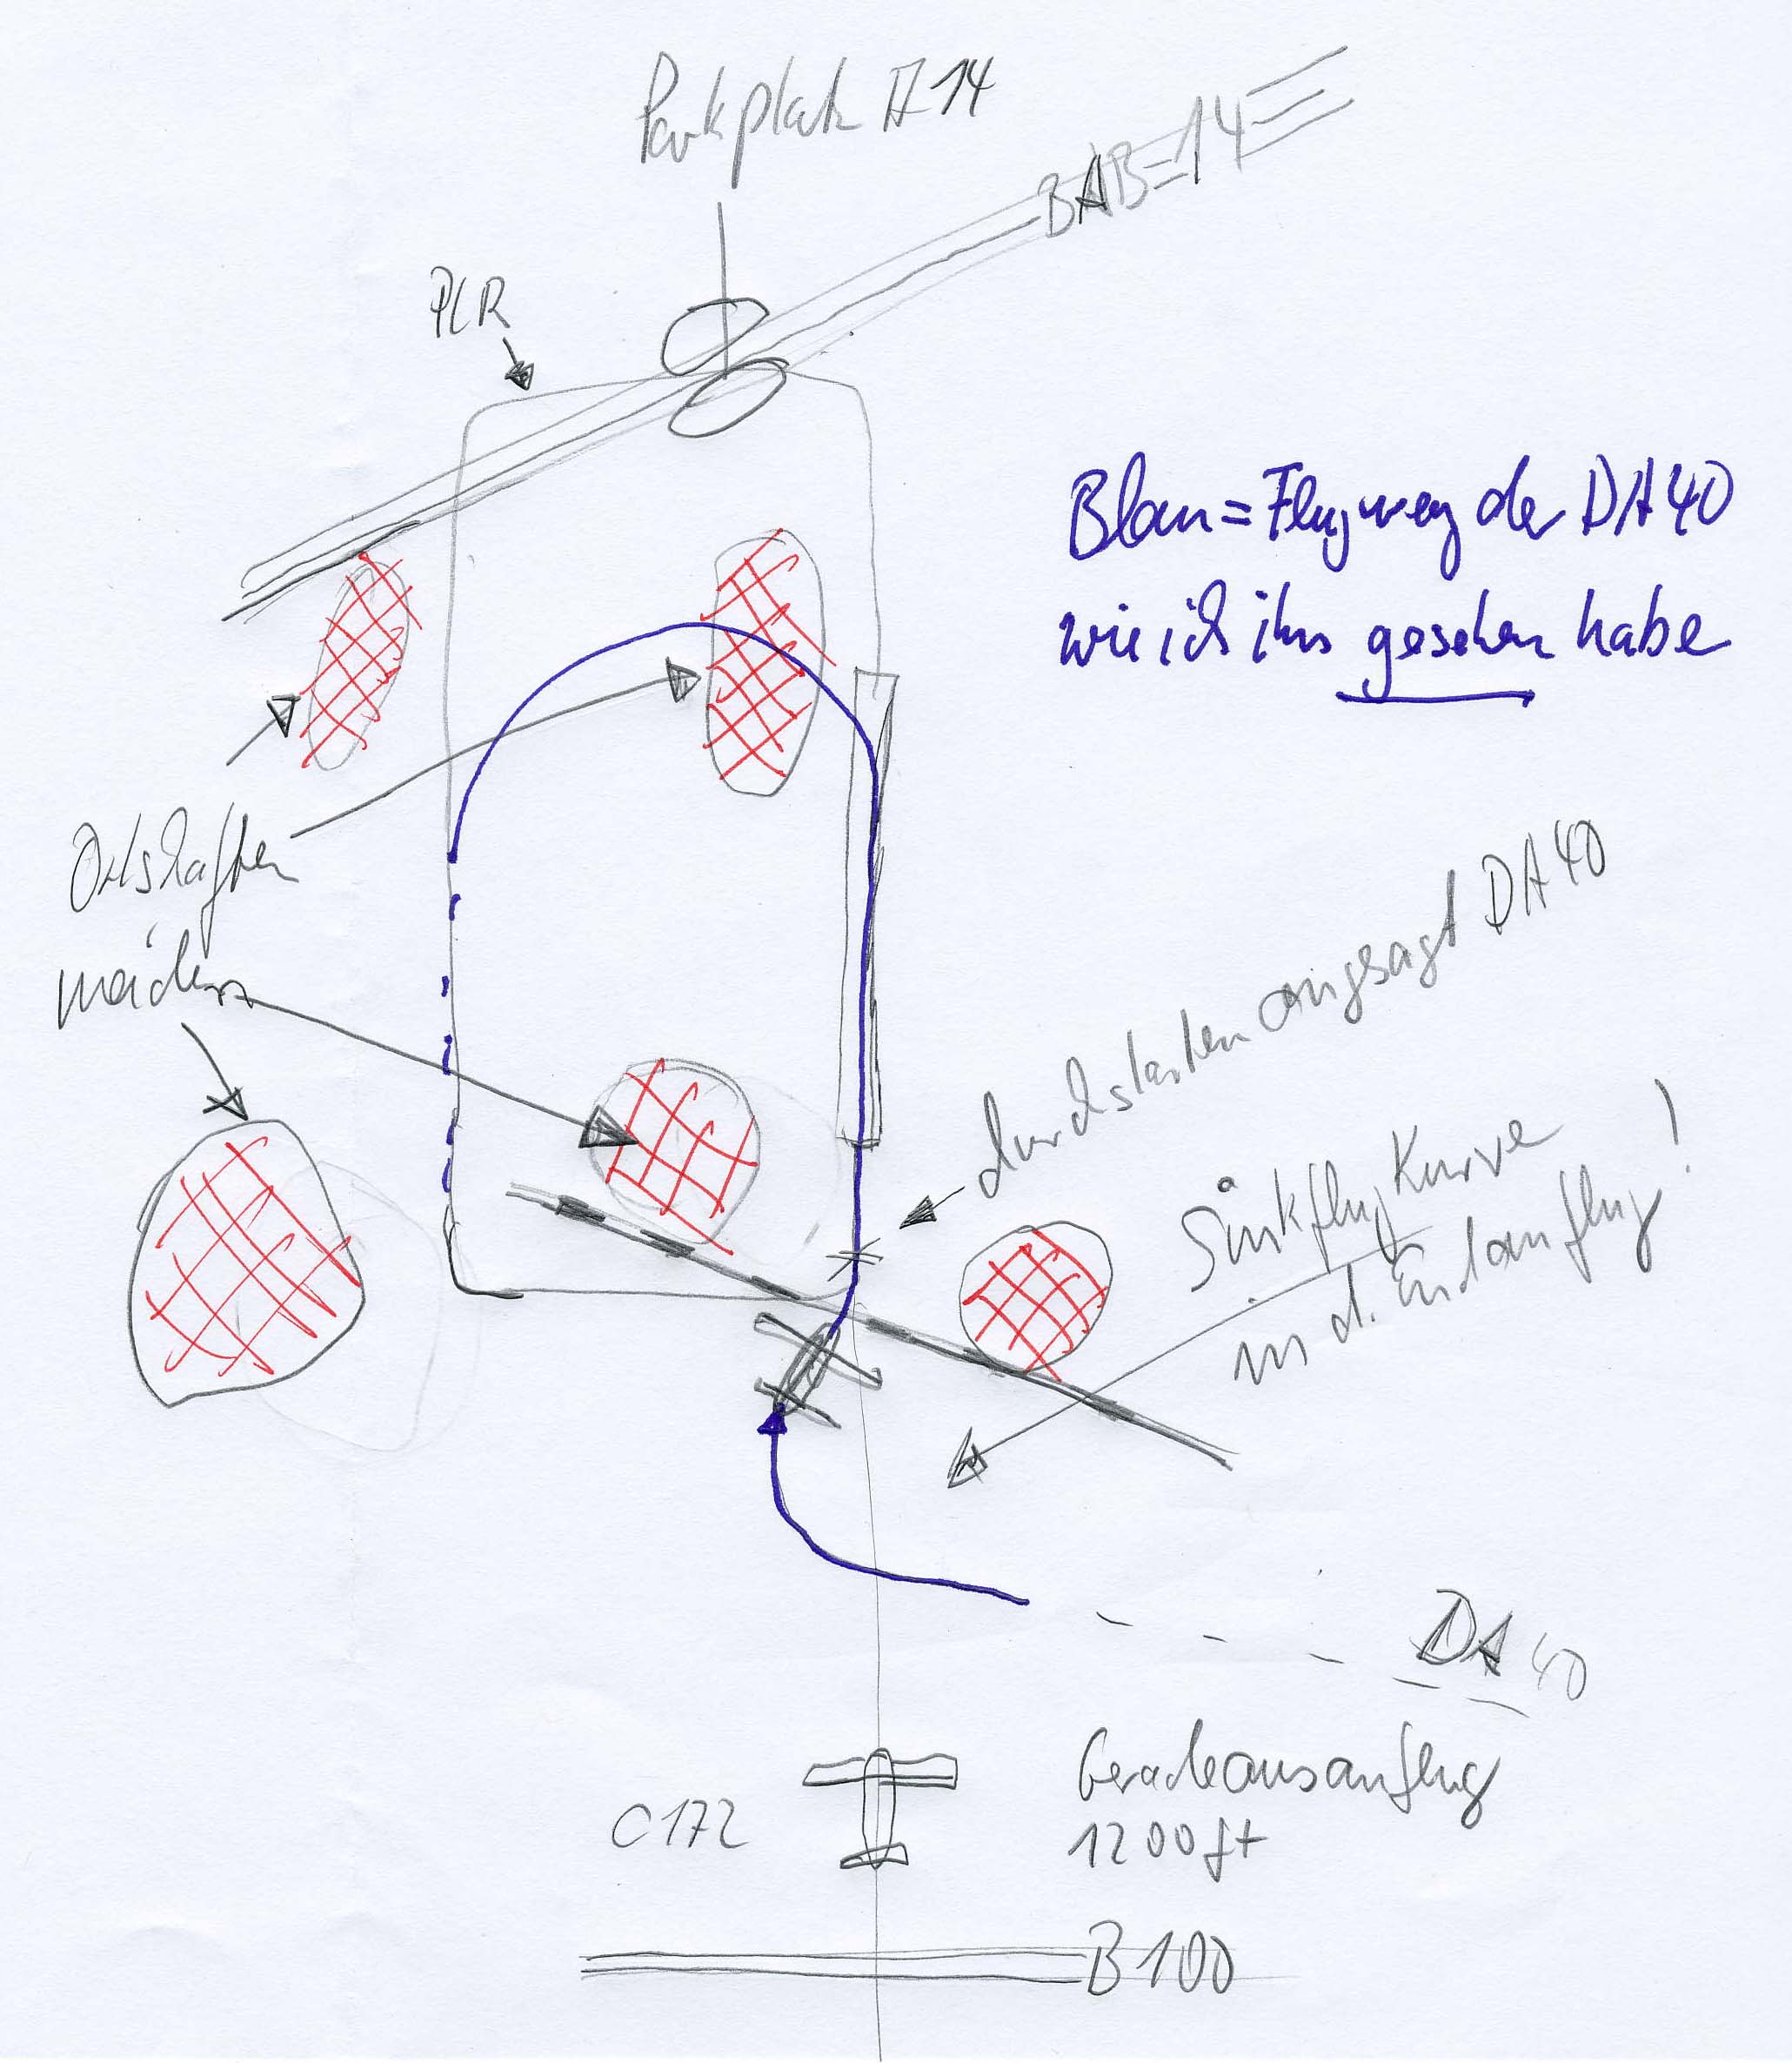 Parkplatz A14
BAB=14
PLR
Blau = Flugweg der DA40
wie ich ihn gesehen habe
Ortschaften
meiden
durchstarten angesagt DA40
Sinkflug Kurve
in d. Endanflug!
DA40
Geradeausanflug
1200ft
C172
B100